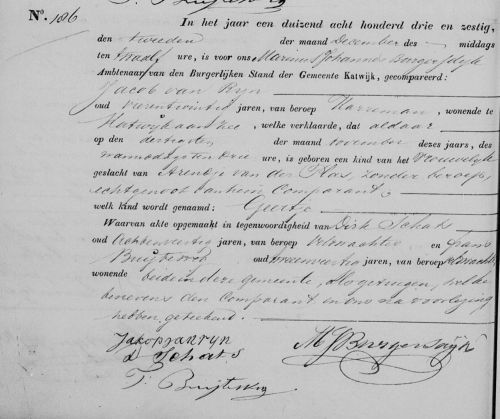 No. 186
In het jaar een duizend acht honderd drie en zestig,
den tweeden der maand December des middags
ten twaalf ure, is voor ons Marinus Johannes Burgersdijk
Ambtenaar van den Burgerlijken Stand der Gemeente Katwijk, gecompareerd:
Jacob van Ryn
oud vierentwintig jaren, van beroep Karreman, wonende te
Katwijk aan Zee, welke verklaarde, dat aldaar
op den dertigsten der maand November dezes jaars, des
namiddags ten drie ure, is geboren een kind van het Vrouwelijk
geslacht van Arendje van der Plas, zonder beroep,
echtgenoot van hem Comparant.
welk kind wordt genaamd: Geertje
Waarvan akte opgemaakt in tegenwoordigheid van Dirk Schaks
oud achtenveertig jaren, van beroep veldwachter en Frans
oud jaren, van beroep
wonende beide in deze gemeente, als getuigen, welke
benevens den Comparant in ons na voorlezing
hebben geteekend.
Jakop van ryn
D Schaks
MJ Burgersdijk